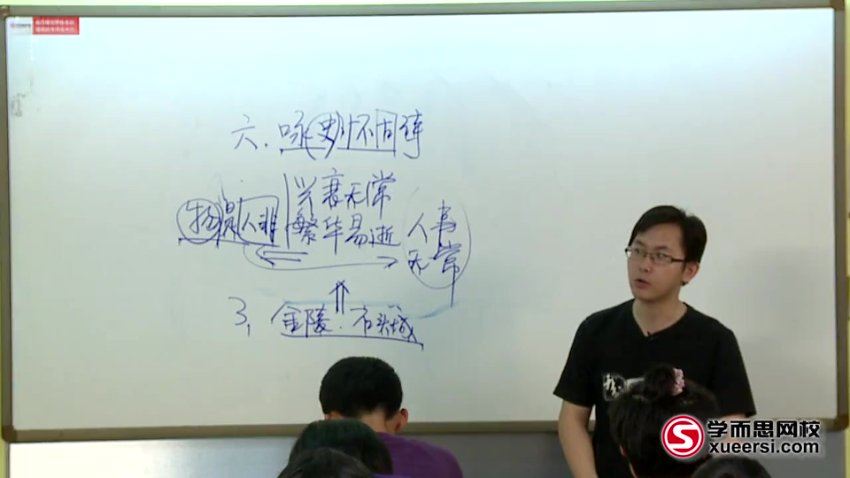 六、咏史怀古诗
物是人非 兴衰无常
繁华易逝
人事
无常
3、金陵、石头城
学而思网校
xueersi.com